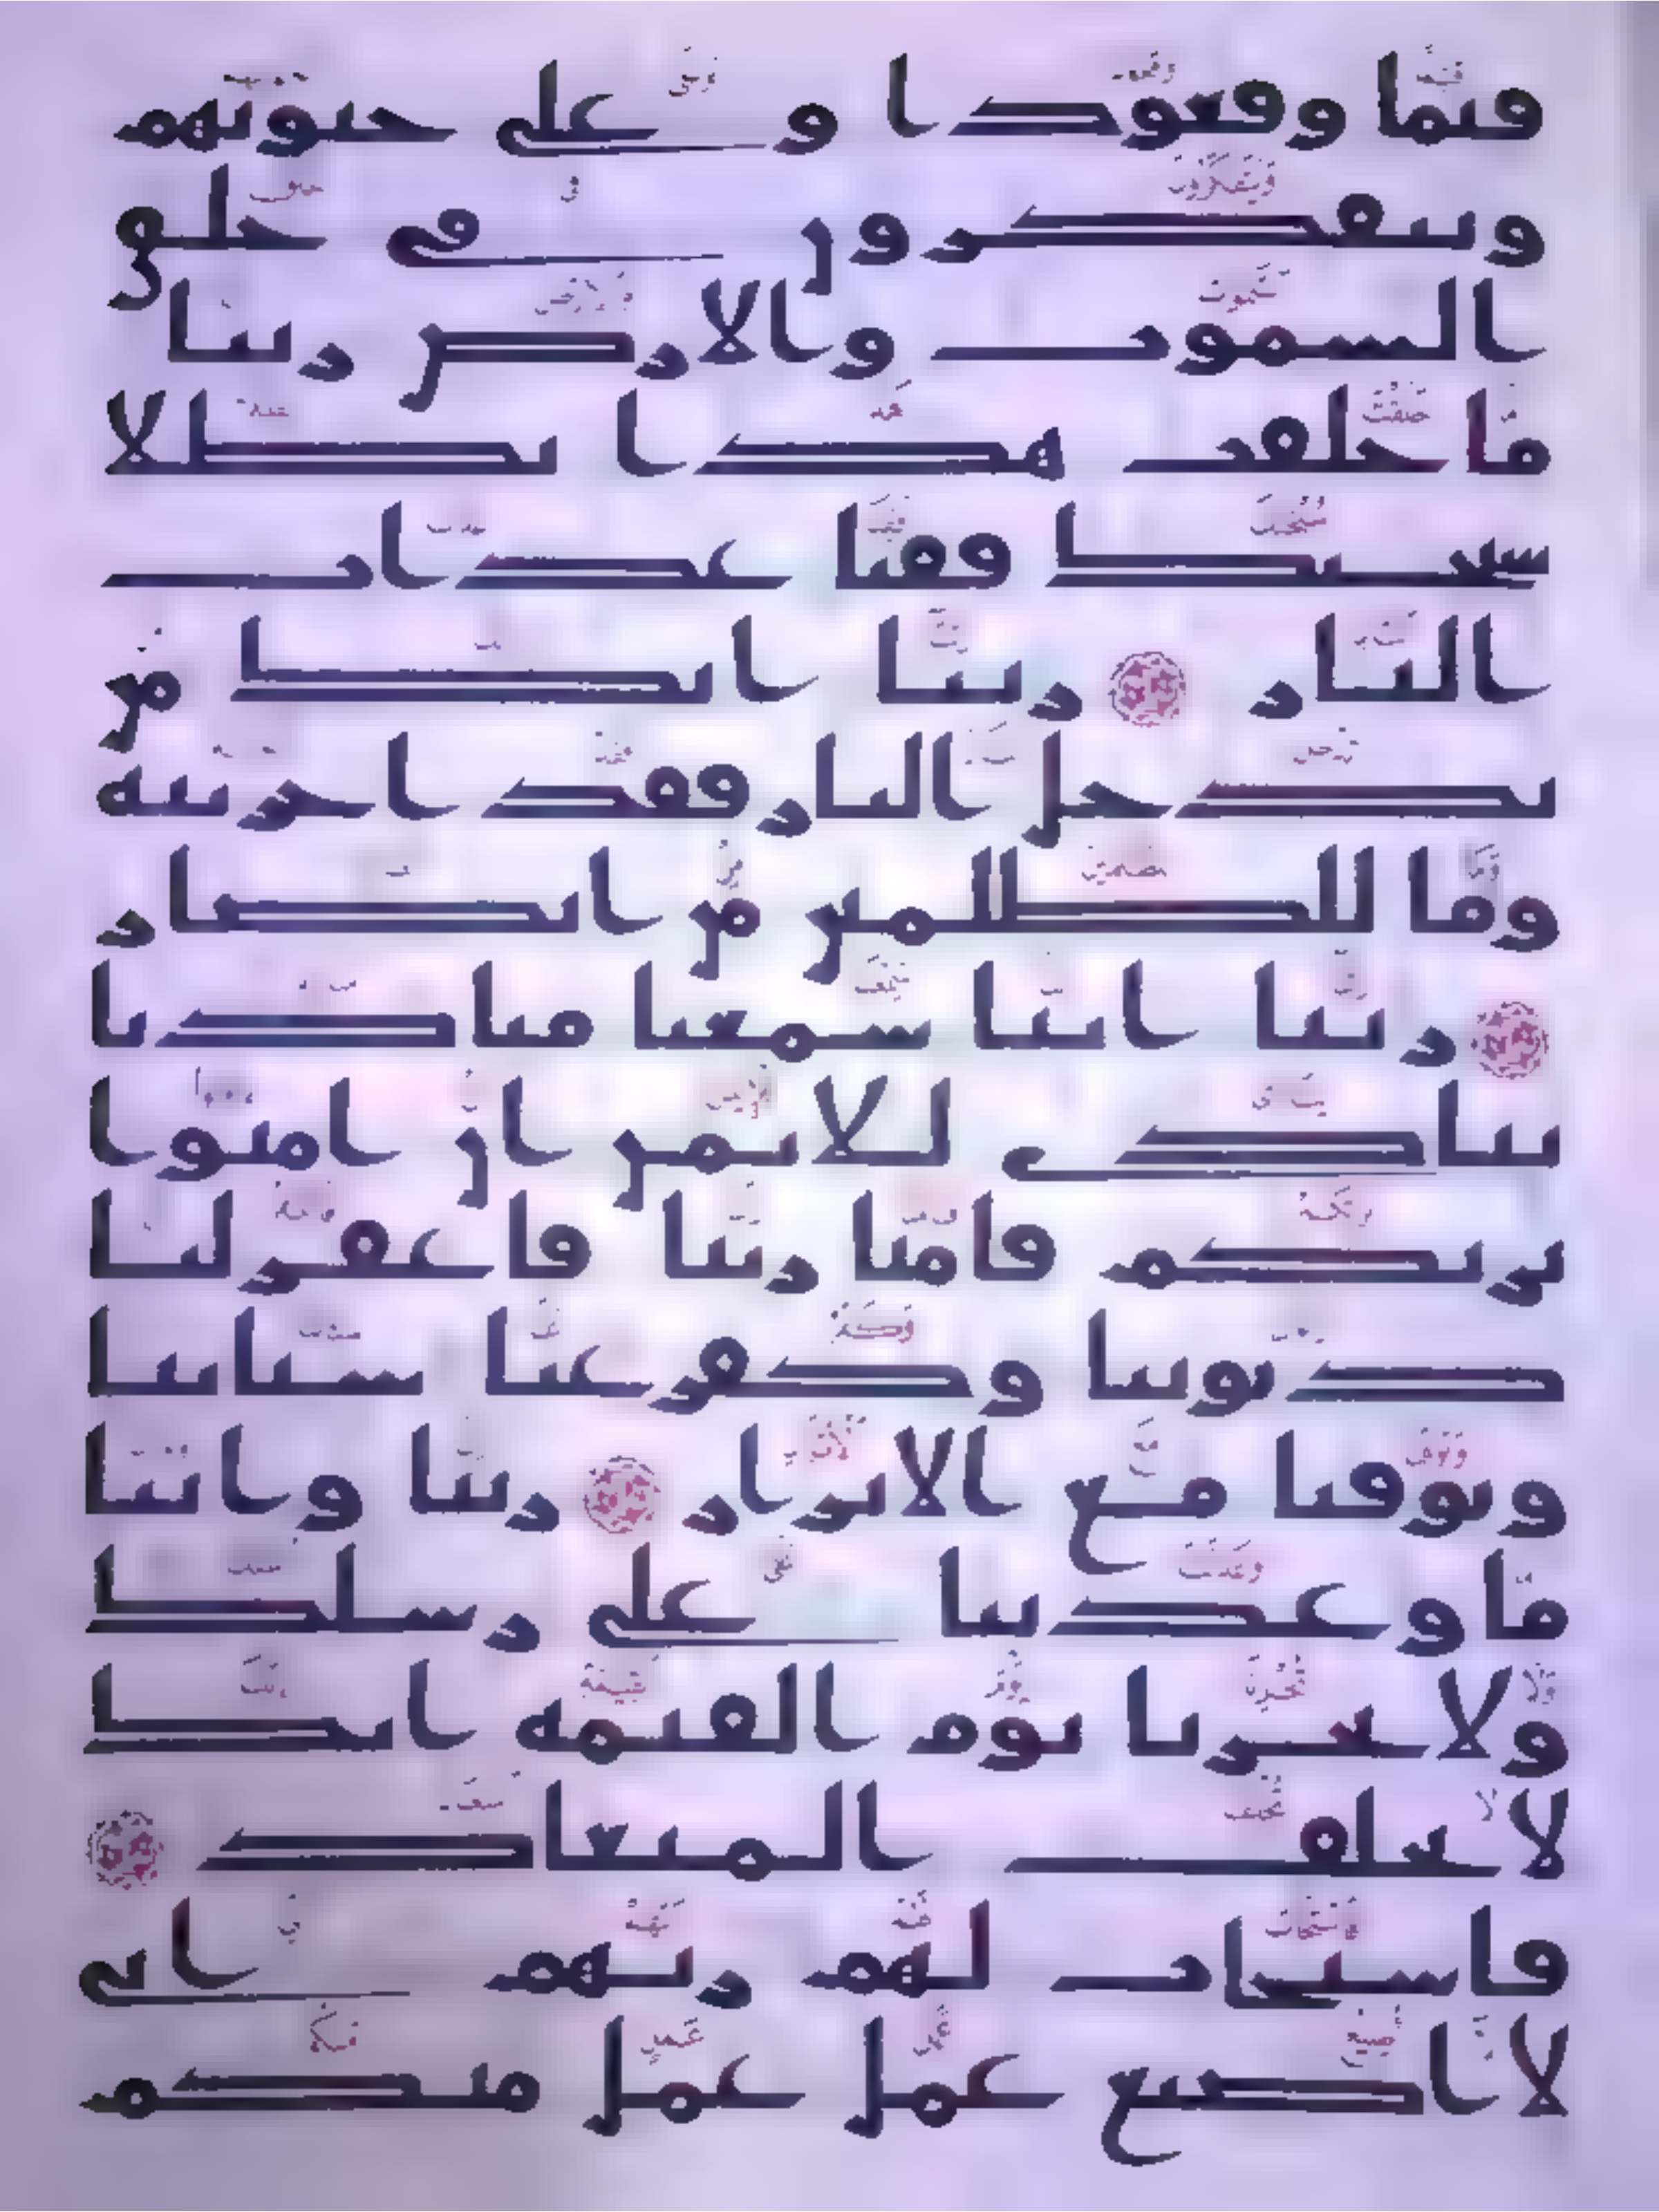 قيما وقعودا و على جنوبهم
ويتفكرون في خلق
السموت والارض ربنا
ما خلقت هذا بطلا
سبحنك فقنا عذاب
النار ربنا انك من
تدخل النار فقد اخزيته
وما للظلمين من انصار
ربنا اننا سمعنا مناديا
ينادي للايمن ان امنوا
بربكم فامنا ربنا فاغفر لنا
ذنوبنا وكفر عنا سياتنا
وتوفنا مع الابرار ربنا واتنا
ما وعدتنا على رسلك
ولا تخزنا يوم القيمة انك
لا تخلف الميعاد
فاستجاب لهم ربهم اني
لا اضيع عمل عمل منكم